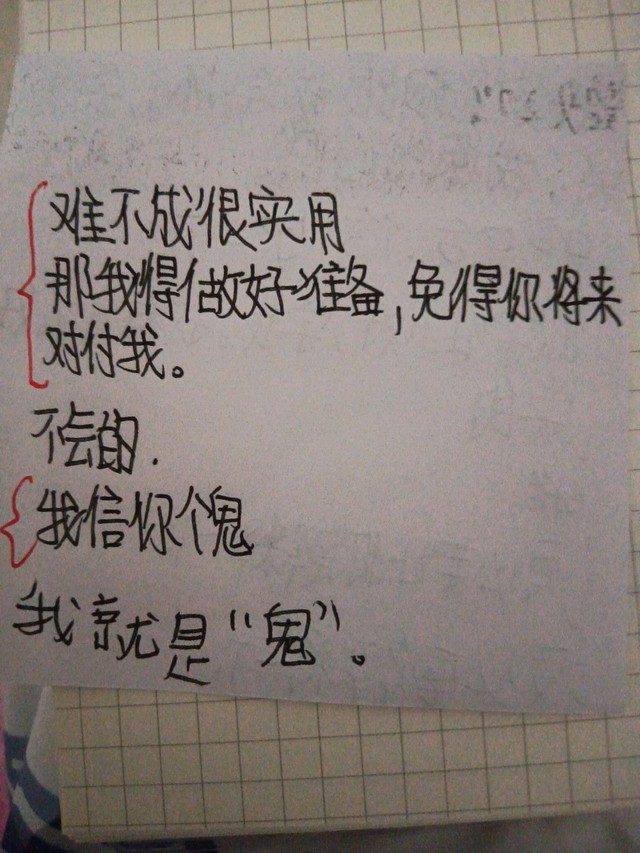 难不成很实用
那我得做好准备,免得你将来
对付我。
不会的.
我信你个鬼
我就是“鬼”。